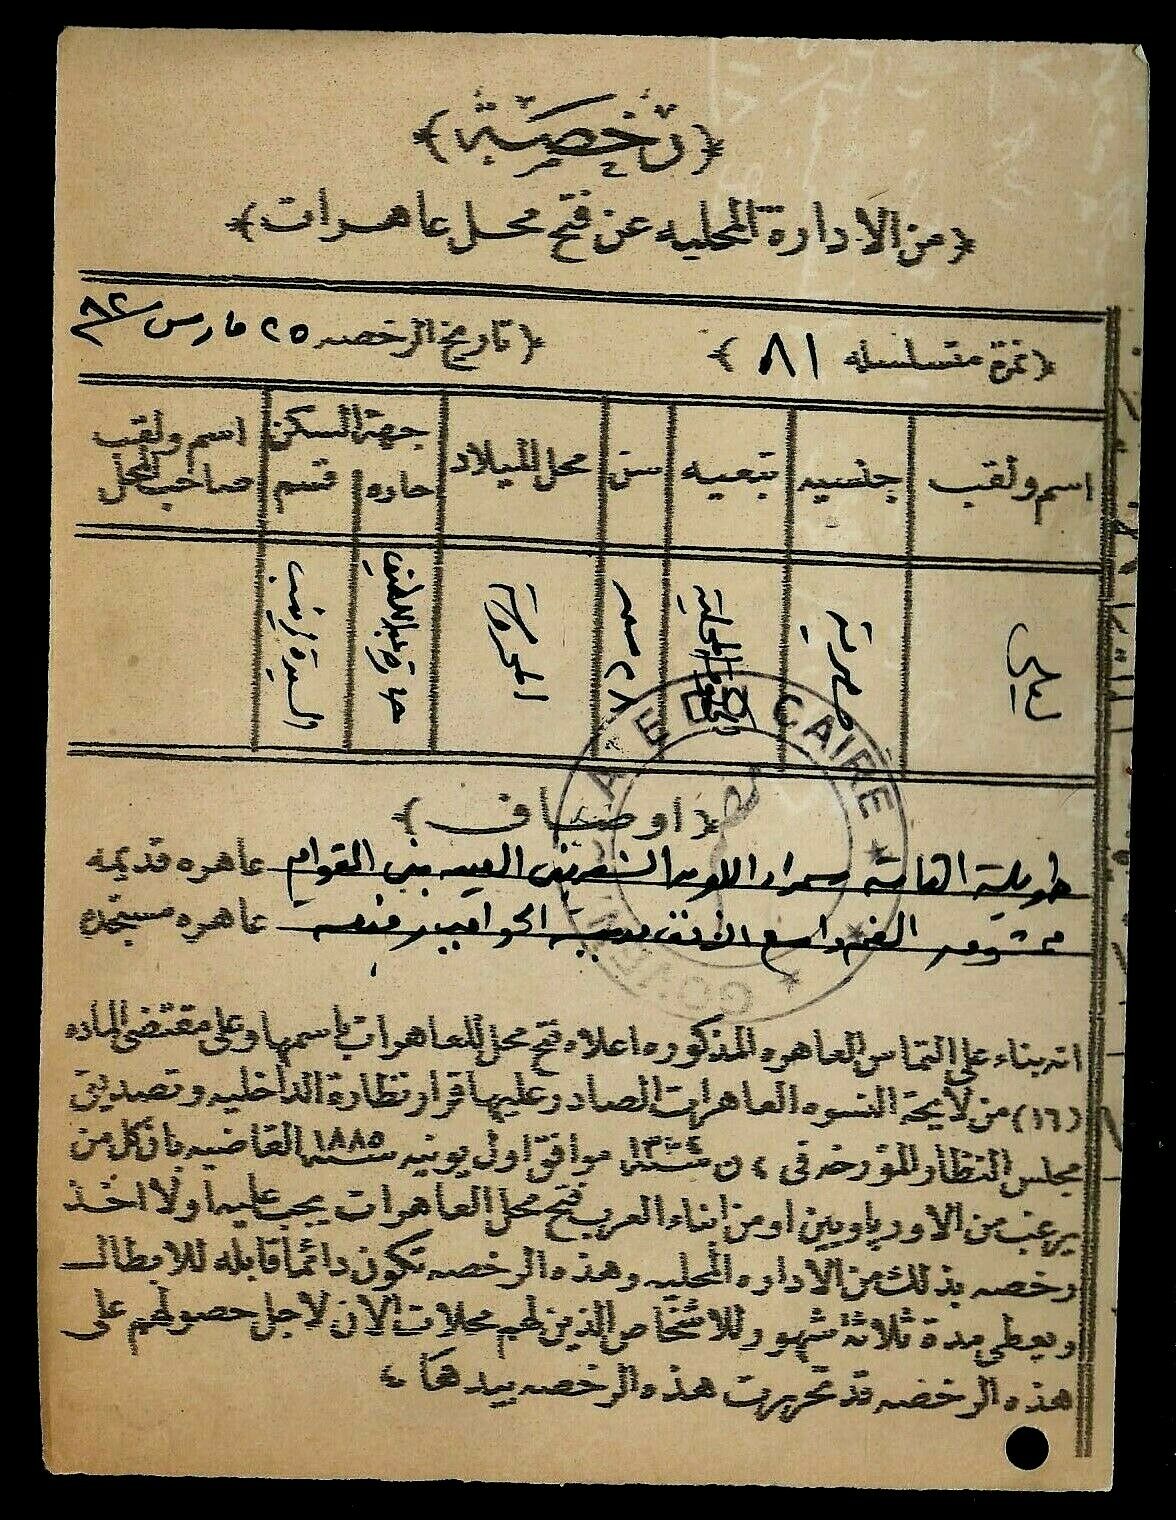 ﴿رخصة﴾
﴿من الادارة المحليه عن فتح محل عاهرات﴾
﴿نمرة متسلسله ٨١﴾ ﴿تاريخ الرخصه ٢٥ مارس
اسم ولقب جنسيه تبعيه سن محل الميلاد جهة السكن اسم ولقب صاحب المحل
حاره قسم
مصرية المحلية ٢٨ سنه المحروسة السيدة زينب
CAIRE
GOUVERN
﴿اوصاف﴾
طويلة القامة سمراء اللون عاهره قديمه
واسع الحواجب عاهره مستجده
انه بناء على التماس العاهره المذكوره اعلاه فتح محل للعاهرات باسمها وعلى مقتضى الماده
(١٦) من لايحة النسوه العاهرات الصادر عليها قرار نظارة الداخليه وتصديق
مجلس النظار المؤرخه فى ٤ ن سنة ١٣٠٤ موافق اول يونيه سنة ١٨٨٥ القاضيه بان كل من
يرغب من الاورپاويين او من ابناء العرب فتح محل العاهرات يجب عليه اولا اخذ
رخصه بذلك من الاداره المحليه وهذه الرخصه تكون دائما قابله للابطال
ويعطى مدة ثلاثة شهور للاشخاص الذين لهم محلات الان لاجل حصولهم على
هذه الرخصه قد تحررت هذه الرخصه بيدها